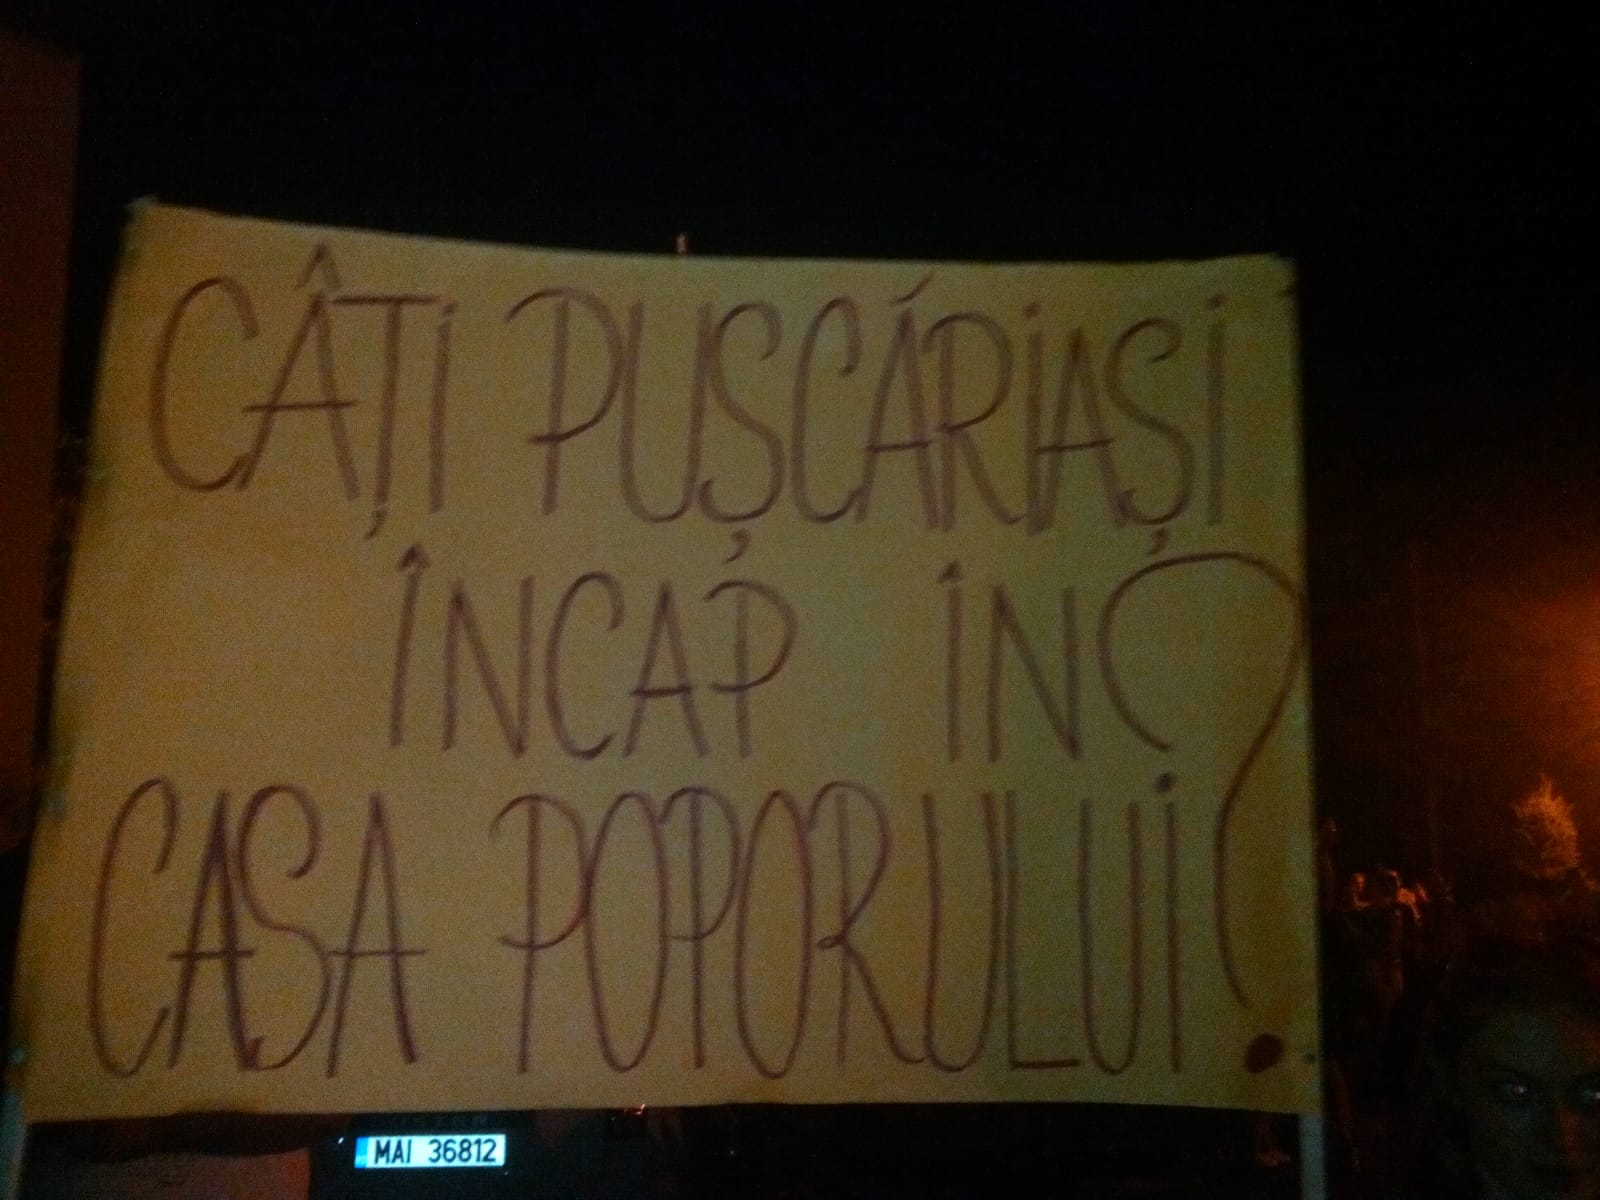 CÂȚI PUȘCĂRIAȘI
ÎNCAP ÎN
CASA POPORULUI?
MAI 36812